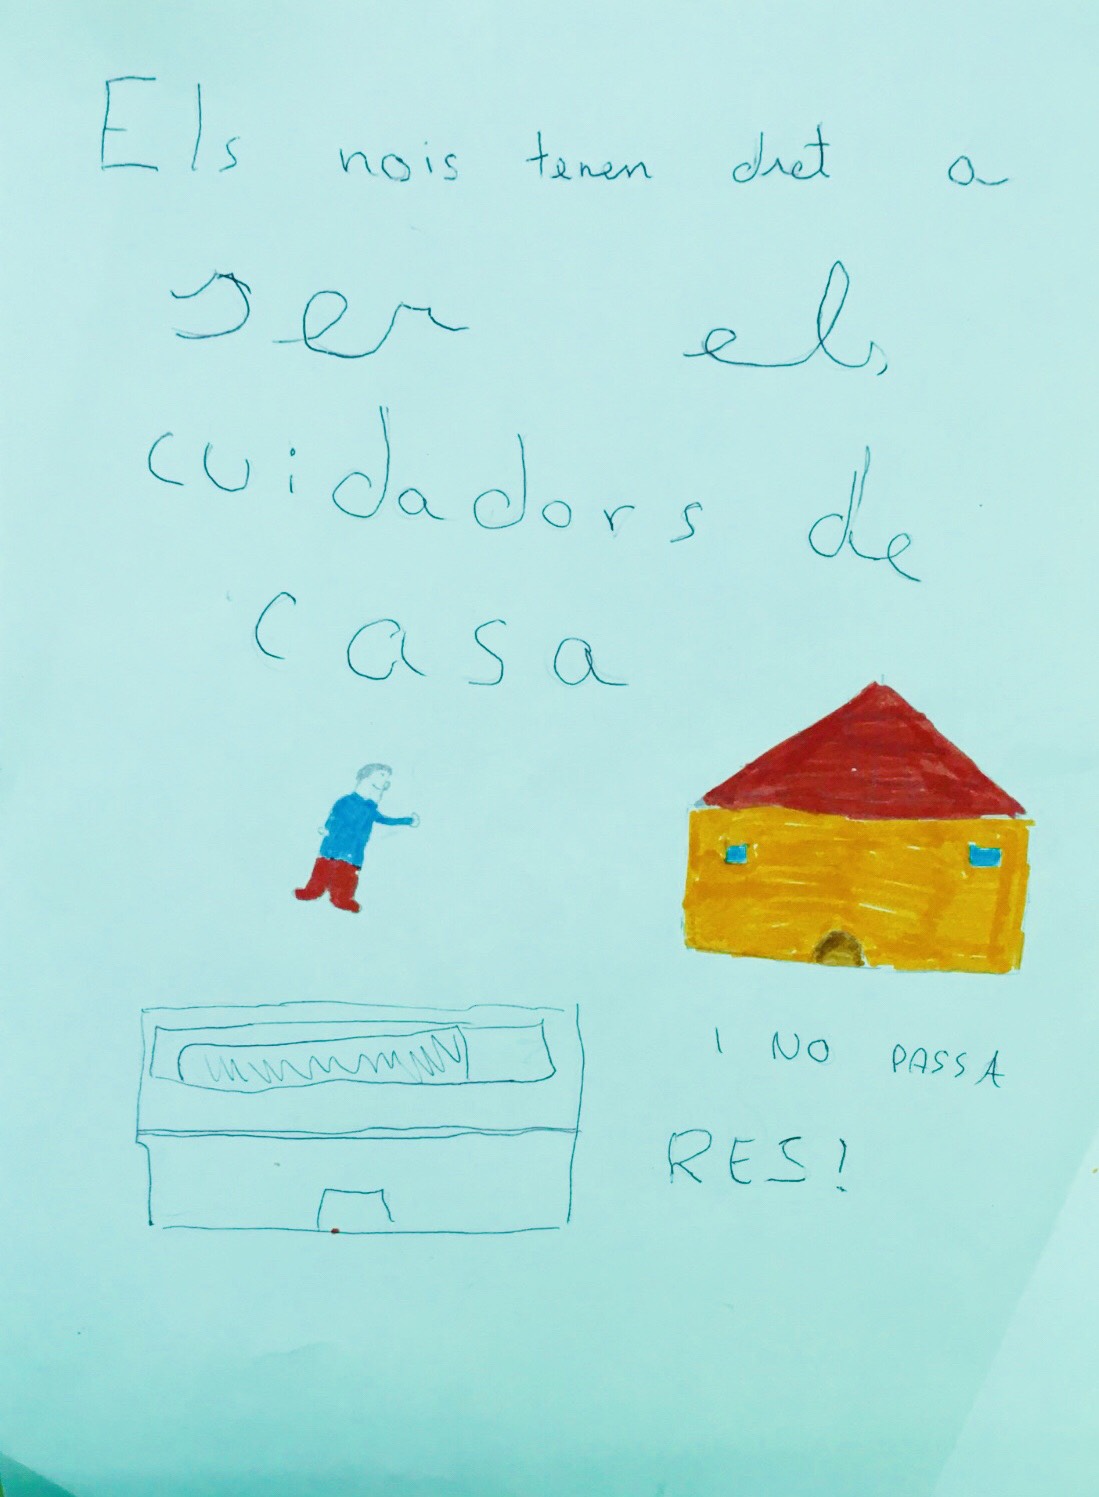 Els nois tenen dret a
ser els
cuidadors de
casa
I NO PASSA
RES!